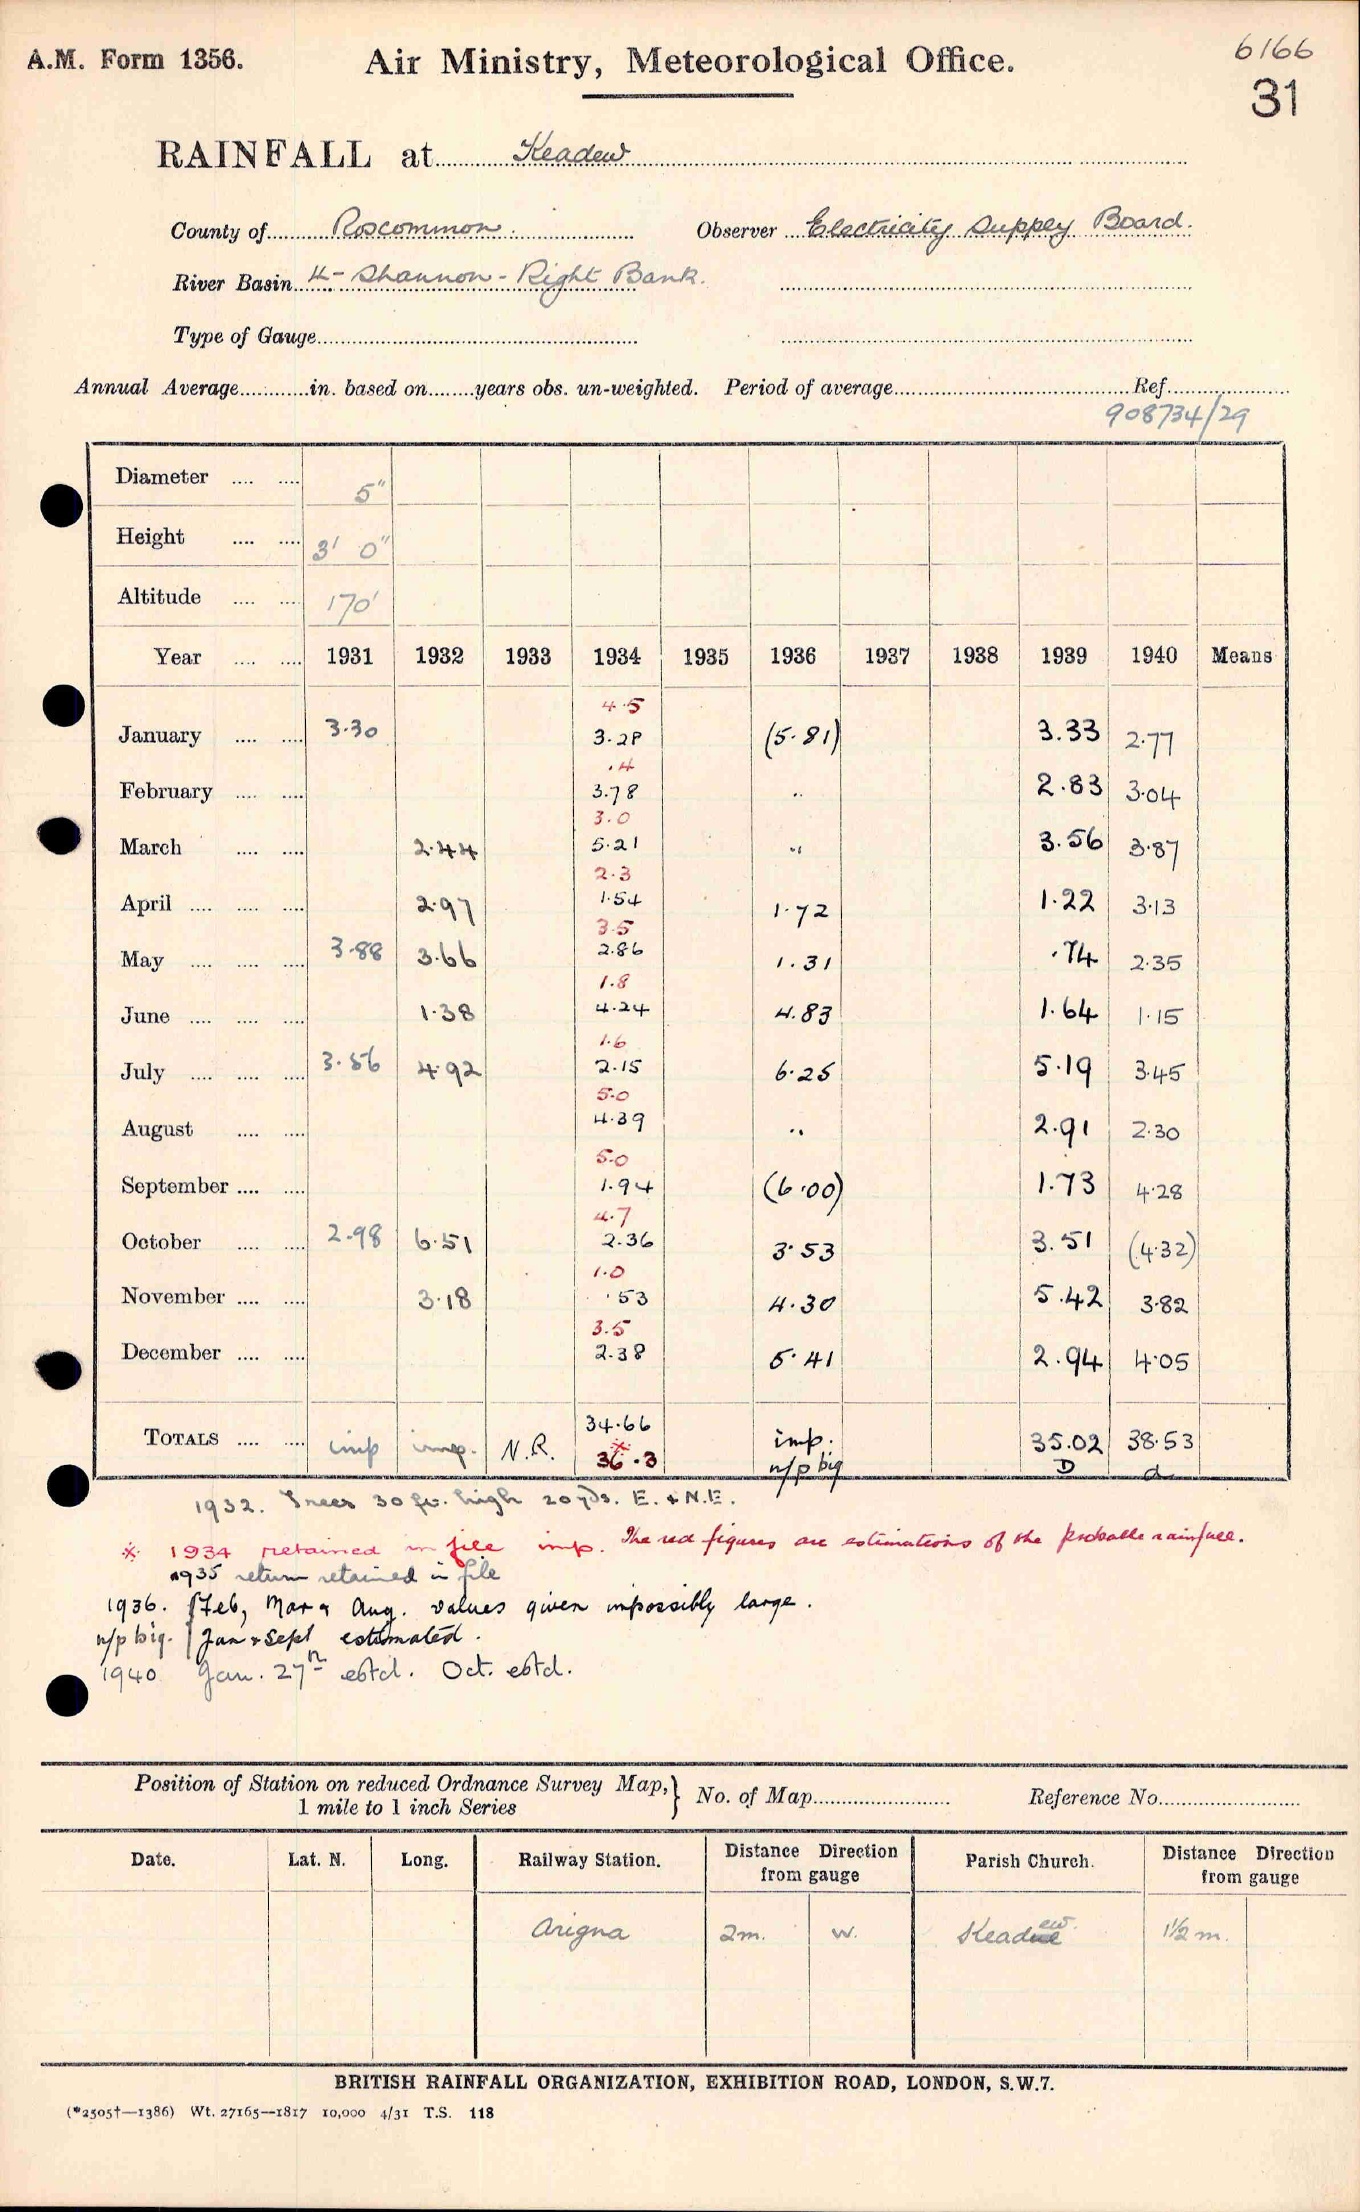 A.M. Form 1356.
Air Ministry, Meteorological Office.
6166
31
RAINFALL at Keadew
County of Roscommon Observer Electricity Supply Board.
River Basin 4 - Shannon - Right Bank.
Type of Gauge
Annual Average in. based on years obs. un-weighted. Period of average Ref
908734/29
Diameter 5"
Height 3' 0"
Altitude 170'
Year 1931 1932 1933 1934 1935 1936 1937 1938 1939 1940 Means
4.5
January 3.30 3.28 (5.81) 3.33 2.77
.4
February 3.78 .. 2.83 3.04
3.0
March 2.44 5.21 .. 3.56 3.87
2.3
April 2.97 1.54 1.72 1.22 3.13
3.5
May 3.88 3.66 2.86 1.31 .74 2.35
1.8
June 1.38 4.24 4.83 1.64 1.15
1.6
July 3.56 4.92 2.15 6.25 5.19 3.45
5.0
August 4.39 .. 2.91 2.30
5.0
September 1.94 (6.00) 1.73 4.28
4.7
October 2.98 6.51 2.36 3.53 3.51 (4.32)
1.0
November 3.18 .53 4.30 5.42 3.82
3.5
December 2.38 5.41 2.94 4.05
34.66
TOTALS imp imp. N.R. 36.3 imp. 35.02 38.53
n/p big D d
1932. Trees 30 ft. high 20 yds. E. & N.E.
* 1934 retained in file imp. The red figures are estimations of the probable rainfall.
1935 return retained in file
1936. Feb, Mar & Aug. values given impossibly large.
n/p big. Jan & Sept estimated.
1940 Jan. 27th estd. Oct. estd.
Position of Station on reduced Ordnance Survey Map, 1 mile to 1 inch Series } No. of Map Reference No.
Date. Lat. N. Long. Railway Station. Distance Direction from gauge Parish Church. Distance Direction from gauge
Arigna 2m. W. Keadew. 1½ m.
BRITISH RAINFALL ORGANIZATION, EXHIBITION ROAD, LONDON, S.W.7.
(*2505†—1386) Wt. 27165—1817 10,000 4/31 T.S. 118